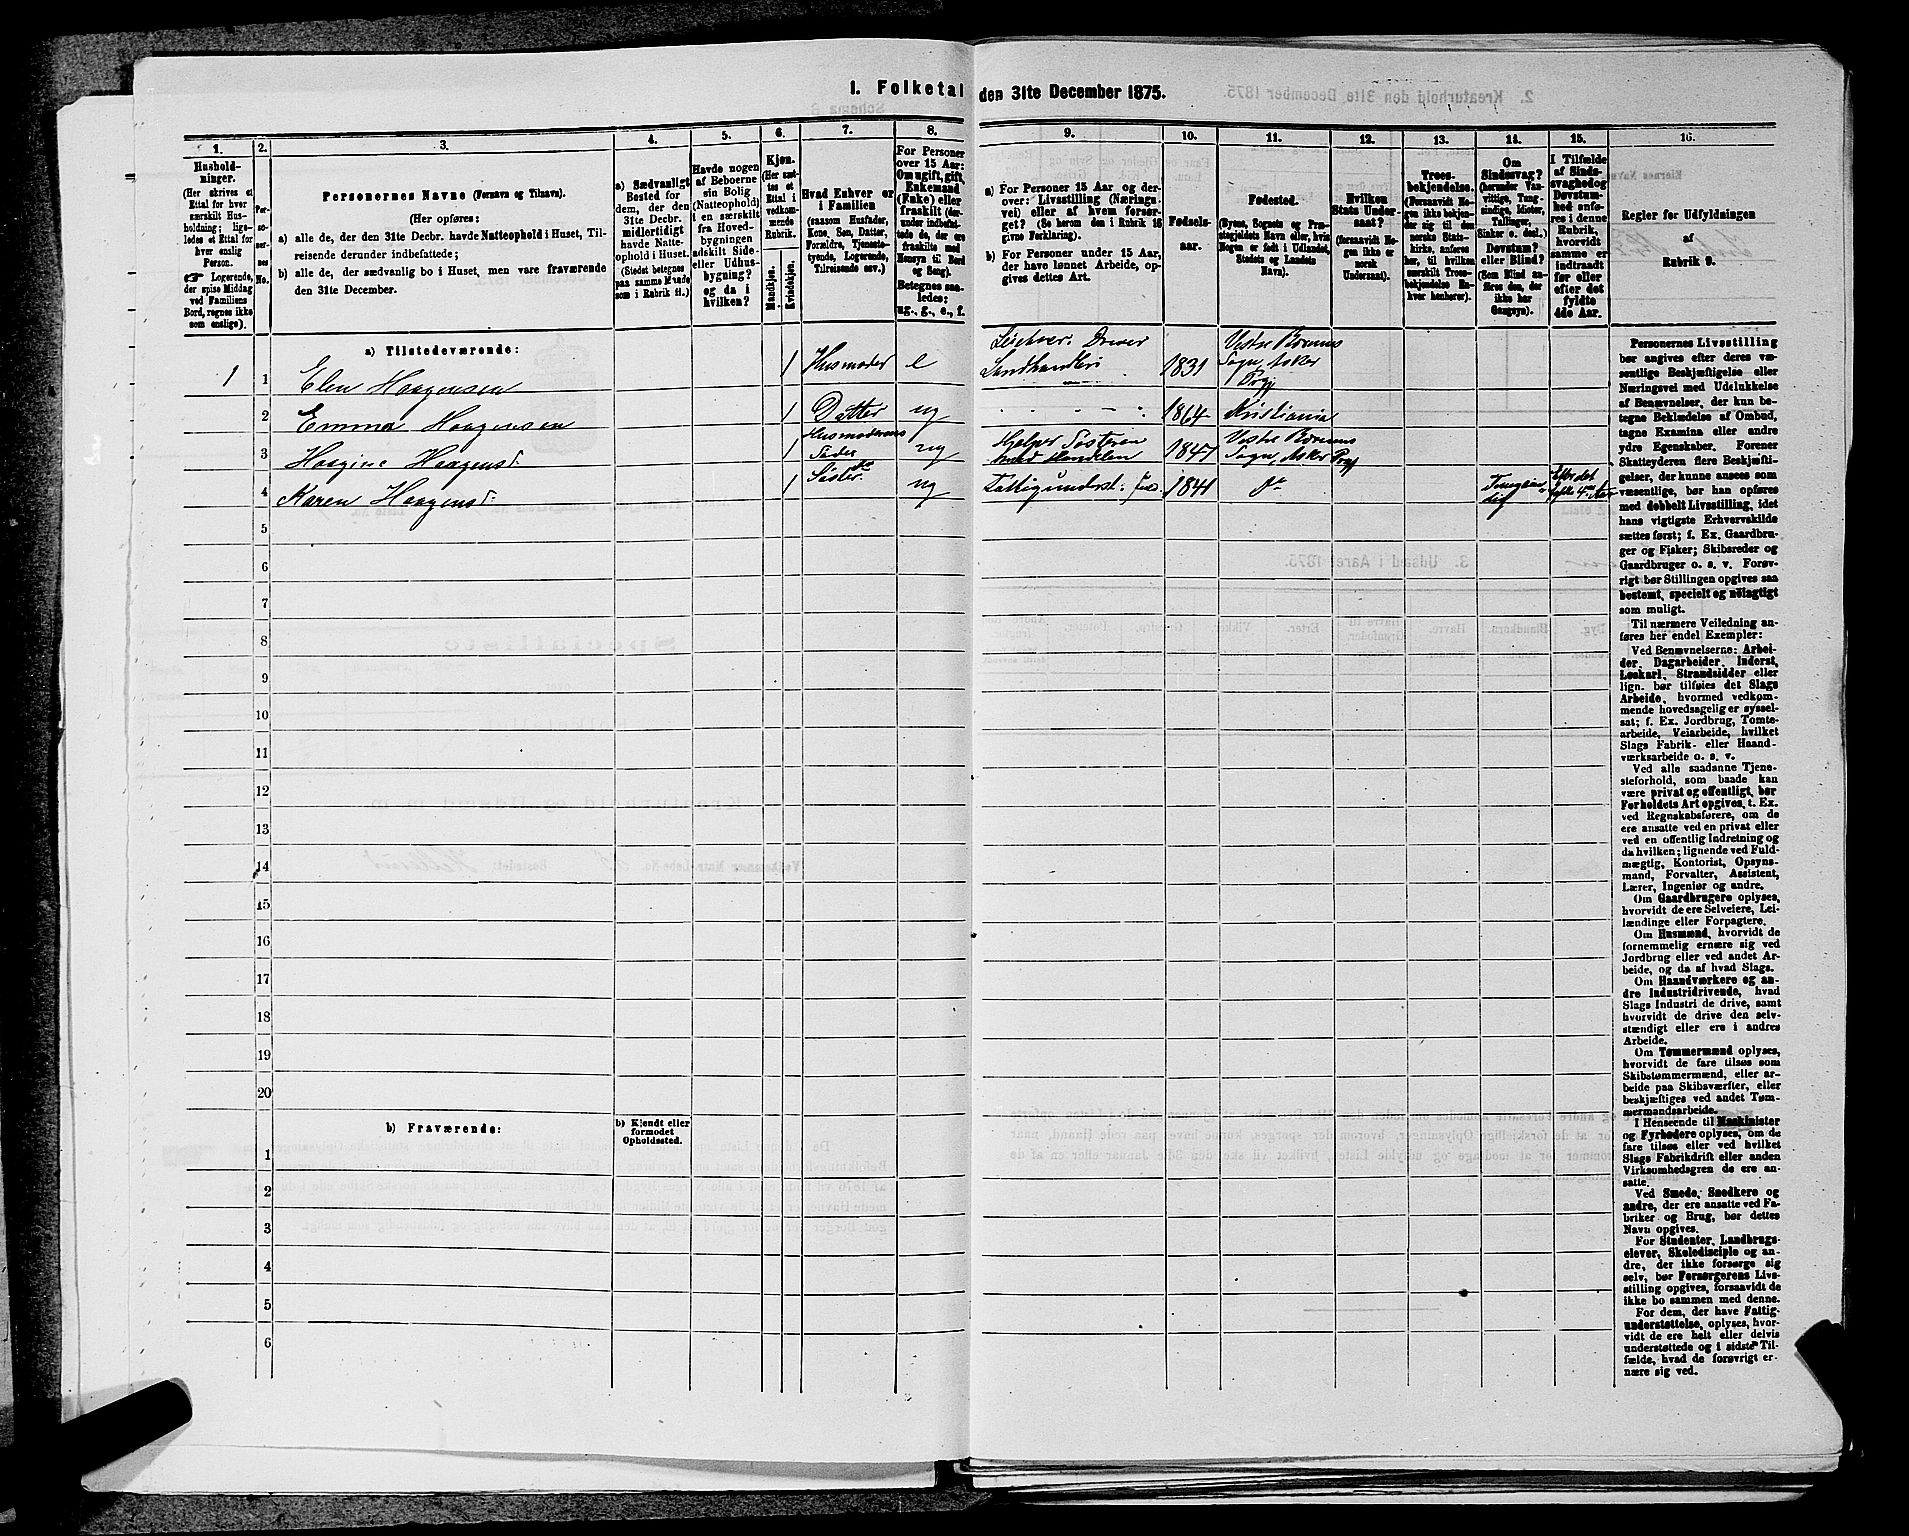 1. Folketal den 31te December 1875.
1.
Hushold-
ninger.
(Her skrives et
Ettal for hver
særskilt Hus-
holdning; lige-
ledes et Ettal for
hver enslig
Person.
☞ Logerende,
der spise Middag
ved Familiens
Bord, regnes ikke
som enslige).
2.
Per-
so-
ner-
nes
No.
3.
Personernes Navne (Fornavn og Tilnavn).
(Her opføres:
a) alle de, der den 31te Decbr. havde Natteophold i Huset, Til-
reisende derunder indbefattede;
b) alle de, der sædvanlig bo i Huset, men vare fraværende
den 31te December.
4.
a) Sædvanligt
Bosted for
dem, der den
31te Decbr.
midlertidigt
havde Natte-
ophold i Huset.
(Stedet betegnes
paa samme Maade
som i Rubrik 11.)
5.
Havde nogen
af Beboerne
sin Bolig
(Natteophold)
i en særskilt
fra Hoved-
bygningen
adskilt Side-
eller Udhus-
bygning?
og da i
hvilken?
6.
Kjøn.
(Her sæt-
tes et
Ettal i
vedkom-
mende
Rubrik.
Mandkjøn.
Kvindekjøn.
7.
Hvad Enhver er
i Familien
(saasom Husfader,
Kone, Søn, Datter,
Forældre, Tjeneste-
tyende, Logerende,
Tilreisende osv.)
8.
For Personer
over 15 Aar:
Om ugift, gift,
Enkemand
(Enke) eller
fraskilt (der-
under indbefat-
tede de, der ere
fraskilte med
Hensyn til Bord
og Seng).
Betegnes saa-
ledes:
ug., g., e., f.
9.
a) For Personer 15 Aar og der-
over: Livsstilling (Nærings-
vei) eller af hvem forsør-
get? (Se herom den i Rubrik 16
givne Forklaring).
b) For Personer under 15 Aar,
der have lønnet Arbeide, op-
gives dettes Art.
10.
Fødsels-
aar.
11.
Fødested.
(Byens, Sognets og Præ-
stegjeldets Navn eller, hvis
Nogen er født i Udlandet,
Stedets og Landets
Navn.)
12.
Hvilken
Stats Under-
saat?
(forsaavidt No-
gen ikke er
norsk
Undersaat).
13.
Troes-
bekjendelse.
(Forsaavidt No-
gen ikke bekjen-
der sig til den
norske Stats-
kirke, anføres
her, til hvilken
særskilt Troes-
bekjendelse En-
hver henhører).
14.
Om
Sindssvag?
(herunder Van-
vittige, Tung-
sindige, Idioter,
Tullinger,
Sinker o. desl.).
Døvstum?
eller Blind?
(Som Blind an-
føres den, der
ikke har
Gangsyn).
15.
I Tilfælde
af Sinds-
svaghed og
Døvstum-
hed anfø-
res i denne
Rubrik,
hvorvidt
samme er
indtraadt
før eller
efter det
fyldte
4de Aar.
16.
Regler for Udfyldningen
af
Rubrik 9.
a) Tilstedeværende:
1 1 Elen Haagensen 1 Husmoder e Landhandleri 1831 Vestre Bærums Sogn, Asker Prgj
2 Emma Haagensen 1 Datter ug 1864 Kristiania
3 Haagine Haagensd. 1 Husmoderens Søster ug Hjelper Søsteren med Handelen 1847 Vestre Bærums Sogn, Asker Prgj
4 Karen Haagensd. 1 Søster ug Fattigunderst. 1841 do Efter det fyldte 4de Aar
5
6
7
8
9
10
11
12
13
14
15
16
17
18
19
20
b) Fraværende:
b) Kjendt eller
formodet
Opholdssted.
1
2
3
4
5
6
Personernes Livsstilling
bør angives efter deres væ-
sentlige Beskjæftigelse eller
Næringsvei med Udelukkelse
af Benævnelser, der kun be-
tegne Beklædelse af Ombud,
tagne Examina eller andre
ydre Egenskaber. Forener
Skatteyderen flere Beskjæfti-
gelser, der kunne ansees som
væsentlige, bør han opføres
med dobbelt Livsstilling, idet
hans vigtigste Erhvervskilde
sættes først; f. Ex. Gaardbru-
ger og Fisker; Skibsreder og
Gaardbruger o. s. v. Forøv-
rigt bør Stillingen opgives saa
bestemt, specielt og nøiagtigt
som muligt.
Til nærmere Veiledning an-
føres her endel Exempler:
Ved Benævnelserne: Arbei-
der, Dagarbeider, Inderst,
Løskarl, Strandsidder eller
lign. bør tilføies det Slags
Arbeide, hvormed vedkom-
mende hovedsagelig er syssel-
sat; f. Ex. Jordbrug, Tomte-
arbeide, Veiarbeide, hvilket
Slags Fabrik- eller Haand-
værksarbeide o. s. v.
Ved alle saadanne Tjene-
steforhold, som baade kan
være privat og offentligt, bør
Forholdets Art opgives, t. Ex.
ved Regnskabsførere, om de
ere ansatte ved en privat eller
ved en offentlig Indretning og
da hvilken; lignende ved Fuld-
mægtig, Kontorist, Opsyns-
mand, Forvalter, Assistent,
Lærer, Ingeniør og andre.
Om Gaardbrugere oplyses,
hvorvidt de ere Selveiere, Lei-
lændinge eller Forpagtere.
Om Husmænd, hvorvidt de
fornemmelig ernære sig ved
Jordbrug eller ved andet Ar-
beide, og da af hvad Slags.
Om Haandværkere og an-
dre Industridrivende, hvad
Slags Industri de drive, samt
hvorvidt de drive den selv-
stændigt eller ere i andres
Arbeide.
Om Tømmermænd oplyses,
hvorvidt de fare tilsøs som
Skibstømmermænd, eller ar-
beide paa Skibsværfter, eller
beskjæftiges ved andet Tøm-
mermandsarbeide.
I Henseende til Maskinister
og Fyrbødere oplyses, om de
fare tilsøs eller ved hvilket
Slags Fabrikdrift eller anden
Virksomhedsgren de ere an-
satte.
Ved Smede, Snedkere og
andre, der ere ansatte ved Fa-
briker og Brug, bør dettes
Navn opgives.
For Studenter, Landbrugs-
elever, Skoledisciple og an-
dre, der ikke forsørge sig
selv, bør Forsørgerens Livs-
stilling opgives, forsaavidt de
ikke bo sammen med denne.
For dem, der have Fattig-
understøttelse, oplyses, hvor-
vidt de ere helt eller delvis
understøttede og i sidste Til-
fælde, hvad de forøvrigt er-
nære sig ved.